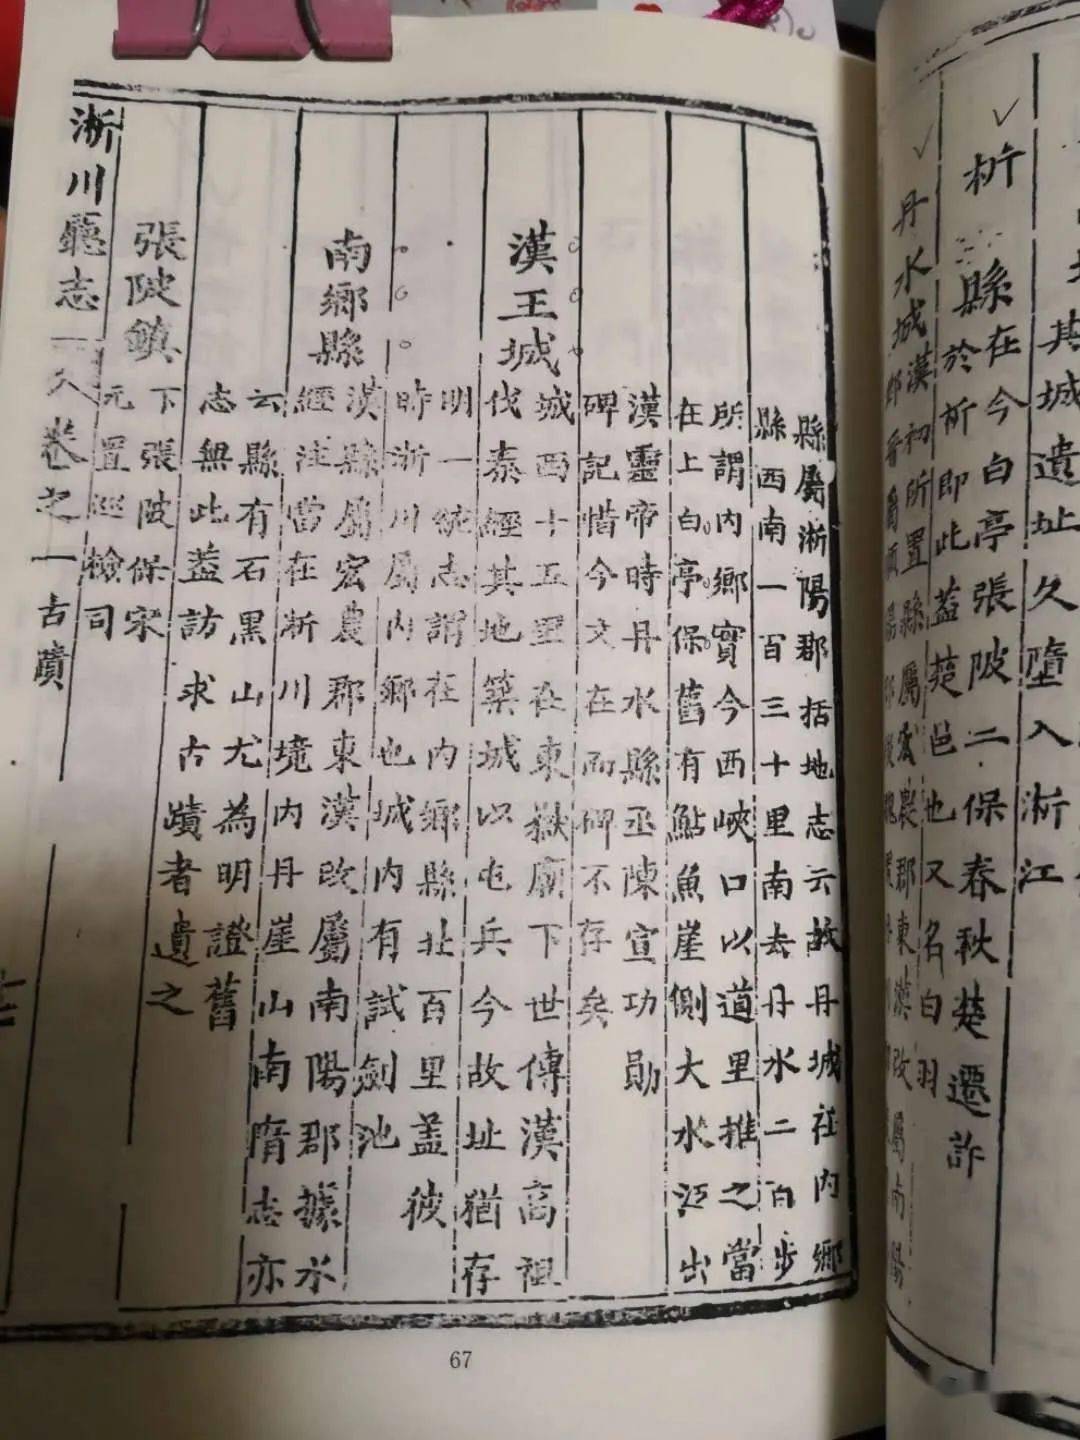 其城遺址久墮入淅江
析縣在今白亭張陂二保春秋楚遷許
於析即此蓋楚邑也又名白羽
丹水城漢初所置縣屬宏農郡東漢改屬南陽
縣屬淅陽郡括地志云故丹城在内鄉
縣西南一百三十里南去丹水二百步
所謂内鄉實今西峽口以道里推之當
在上白亭保舊有鮎魚崖側大水江出
漢靈帝時丹水縣丞陳宣功勛
碑記惜今文在而碑不存矣
漢王城
城西十五里在東嶽廟下世傳漢高祖
伐秦經其地築城以屯兵今故址猶存
明一統志謂在内鄉縣北百里蓋彼
時淅川屬内鄉也城内有試劍池
南鄉縣
漢縣屬宏農郡東漢改屬南陽郡據水
經注當在淅川境内丹崖山南隋志亦
云縣有石黑山尤為明證舊
志無此蓋訪求古蹟者遺之
張陂鎮
下張陂保宋
元置巡檢司
淅川廳志
卷之一
古蹟
67